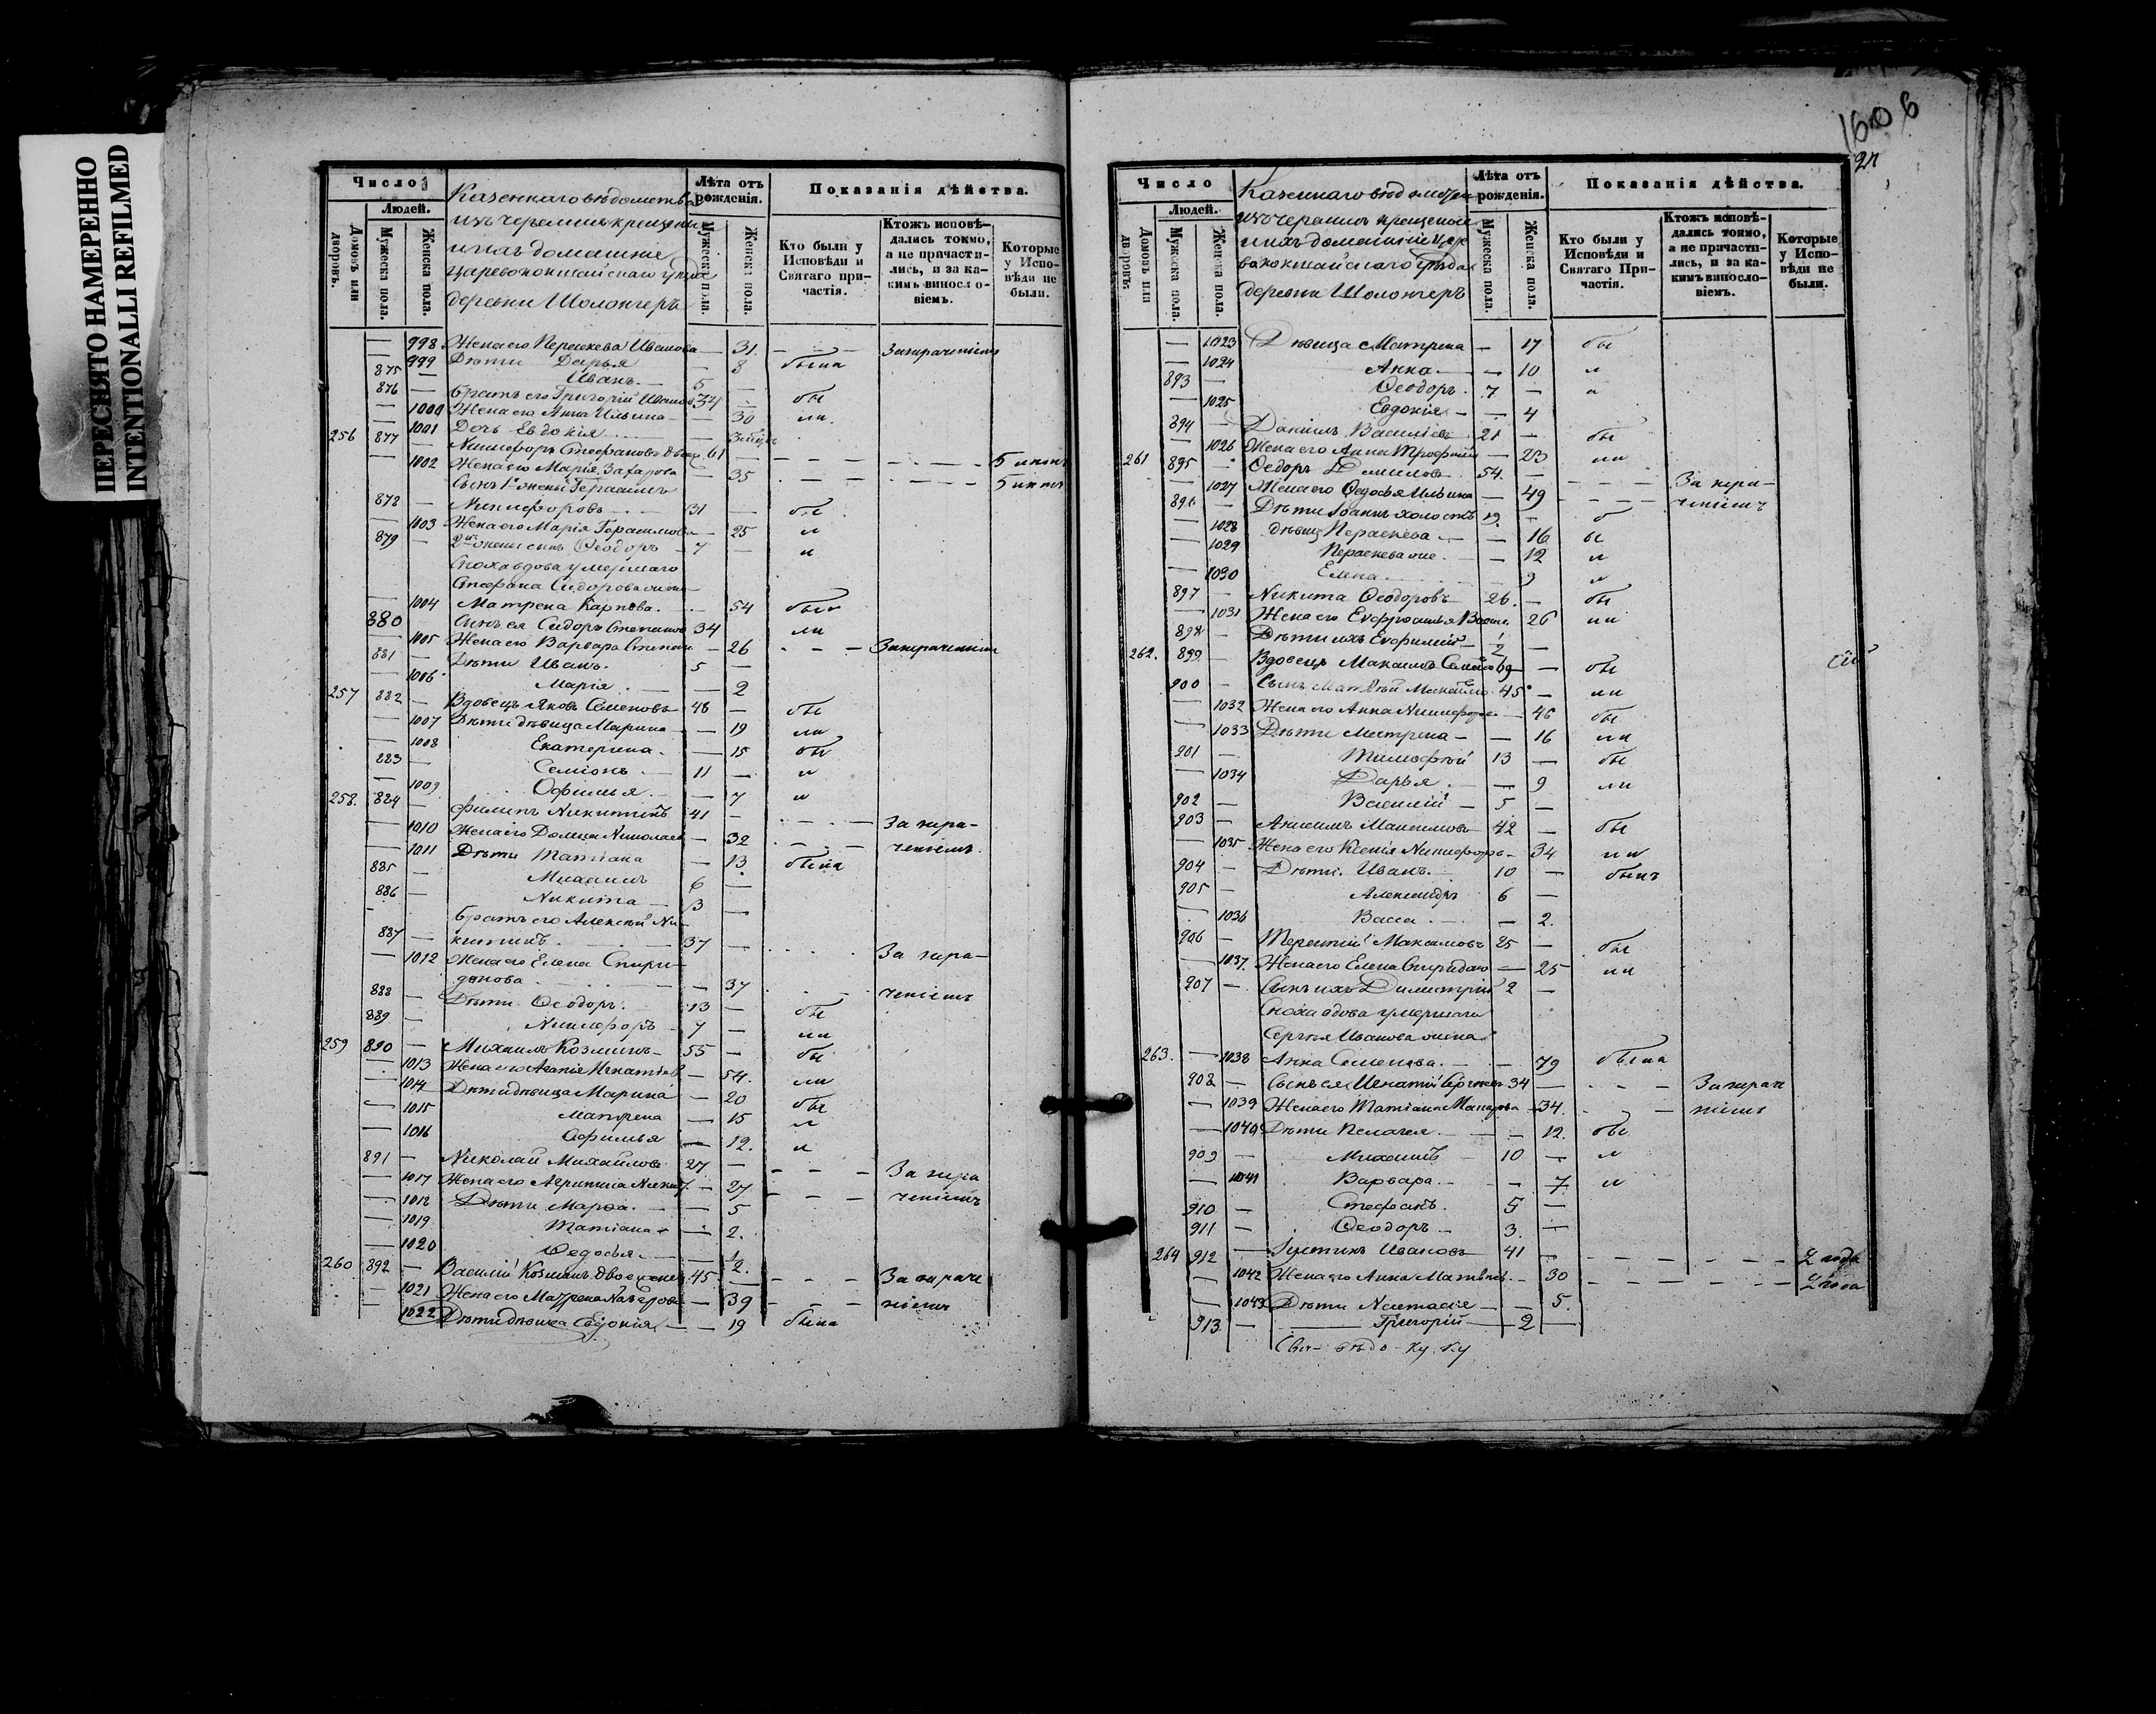 ПЕРЕСНЯТО НАМЕРЕННО
INTENTIONALLI REFILMED
Число
Людей.
Домовъ или дворовъ.
Мужеска пола.
Женска пола.
Казеннаго вѣдомства
изъ черемисъ крещеные
и ихъ домашніе
Царевококшайскаго уѣзда
деревни Шолонгеръ
Лѣта отъ рожденія.
Мужеска пола.
Женска пола.
Показанія дѣйства.
Кто были у Исповѣди и Святаго причастія.
Ктожъ исповѣдались токмо, а не причастились, и за какимъ винословіемъ.
Которые у Исповѣди не были.
— 998 Жена его Параскева Иванова — 31 — — — За нераченіемъ
— 999 Дѣти Дарья — 8 была
875 — Иванъ 5 —
876 — Братъ его Григорій Ивановъ 34 — бы
— 1000 Жена его Анна Ильина — 30 ли
— 1001 Дочь Евдокія —
256 877 — Никифоръ Стефановъ 61 — — — — 5 лѣтъ
— 1002 Жена его Марія Захарова — 35 — — — 5 лѣтъ
Сынъ 1й жены Герасимъ
878 — Никифоровъ 31 — бы
— 1003 Жена его Марія Герасимова — 25 л
879 — 2й жены сынъ Ѳеодоръ 7 — и
Сноха вдова умершаго
Стефана Сидорова жена
— 1004 Матрена Карпова — 54 была
880 Сынъ ея Сидоръ Степановъ 34 ли
— 1005 Жена его Варвара — 26 — — — За нераченіемъ
881 — Дѣти Иванъ 5 —
— 1006 Марія — 2
257 882 — Вдовецъ Яковъ Семеновъ 48 — бы
— 1007 Дѣти дѣвица Марина — 19 ли
— 1008 Екатерина — 15 бы
883 — Семіонъ 11 — л
— 1009 Офимья — 7 и
258. 884 — Филипъ Никитинъ 41 — — — — За нера-
— 1010 Жена его Домна Николаева — 32 — — ченіемъ.
— 1011 Дѣти Татіана — 13 была
885 — Михаилъ 6 —
886 — Никита 3 —
Братъ его Алексѣй Ни-
887 — китинъ 37 — За нера-
— 1012 Жена его Елена Спири-
донова — 37 — ченіемъ
888 — Дѣти Ѳеодоръ 13 — бы
889 — Никифоръ 7 — ли
259 890 — Михаилъ Козминъ 55 — бы
— 1013 Жена его Агапія Игнатіева — 54. ли
— 1014 Дѣти дѣвица Марина — 20 бы
— 1015 Матрена — 15 л
— 1016 Офимья — 12. и
891 — Николай Михайловъ 27 — — — — За нера
— 1017 Жена его Агрипина — 27 — — — ченіемъ
— 1018 Дѣти Марѳа — 5
— 1019 Татіана — 2.
— 1020 Ѳедосья — 1/2.
260 892 — Василій Козминъ двоеженецъ 45 — — — — За нераче
— 1021 Жена его Матрена Назарова — 39 — — — ніемъ
1022 Дѣти дѣвица Евдокія — 19 была
160 6
Число
Людей.
Домовъ или дворовъ.
Мужеска пола.
Женска пола.
Казеннаго вѣдомства
изъ черемисъ крещеные
и ихъ домашніе Царе
вококшайскаго уѣзда
деревни Шолонгеръ
Лѣта отъ рожденія.
Мужеска пола.
Женска пола.
Показанія дѣйства.
Кто были у Исповѣди и Святаго Причастія.
Ктожъ исповѣдались токмо, а не причастились, и за какимъ винословіемъ.
Которые у Исповѣди не были.
— 1023 Дѣвица Матрена — 17 бы
— 1024 Анна — 10 л
893 — Ѳеодоръ 7 — и
— 1025 Евдокія — 4
894 — Данилъ Василіевъ 21 — бы
— 1026 Жена его Анна Трофимова — 23 ли
261 895 — Ѳедоръ Даниловъ 54. — — — — За нера-
— 1027 Жена его Ѳедосья Ильина — 49 — — — ченіемъ
896 — Дѣти Іоаннъ холостъ 19. — б
— 1028 дѣвица Параскева — 16 ы
— 1029 Параскева же — 12 л
— 1030 Елена — 9 и
897 — Никита Ѳеодоровъ 26. — бы
— 1031 Жена его Евфросинья — 26 ли
898 — Дѣти ихъ Евфимій 1/2 —
262. 899 — Вдовецъ Максимъ Семеновъ 69 — бы
900 — Сынъ Матвѣй Максимовъ 45 — ли
— 1032 Жена его Анна Никифорова — 46 бы
— 1033 Дѣти Матрена — 16 ли
901 — Тимофѣй 13 — бы
— 1034 Дарья — 9 ли
902 — Василій 5 —
903 — Анисимъ Максимовъ 42 — бы
— 1035 Жена его Ксенія Никифорова — 34 ли
904 — Дѣти. Иванъ. 10 — былъ
905 — Александръ 6 —
— 1036 Васса — 2.
906 — Терентій Максимовъ 25 — бы
— 1037. Жена его Елена Спиридонова — 25 ли
907 — Сынъ ихъ Димитрій 2 —
Сноха вдова умершаго
Сергѣя Иванова жена
263. — 1038 Анна Семенова. — 79 была
908 — Сынъ ея Игнатій Сергѣевъ 34 — — — — За нераче
— 1039 Жена его Татіана Макарова — 34. — — — ніемъ
— 1040 Дѣти Пелагея — 12. бы
909 — Михаилъ 10 — л
— 1041 Варвара — 7 и
910 — Стефанъ 5 —
911 — Ѳеодоръ 3. —
264 912 — Іустинъ Ивановъ 41 — — — — 2 года
— 1042 Жена его Анна Матвѣева — 30 — — — 2 года
— 1043 Дѣти Настасія — 5.
913 — Григорій 2 —